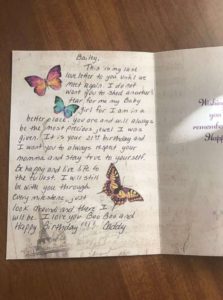 Bailey,
This is my last
love letter to you until we
meet again. I do not
want you to shed another
tear for me my Baby
girl for I am in a
better place. you are and will always
be the most precious jewel I was
given. It is your 21st birthday and
I want you to always respect your
momma and stay true to yourself
Be happy and live life to
the fullest. I will still
be with you through
every milestone, just
look around and there I
will be. I love you Boo Boo and
Happy Birthday!!!! Daddy
you
remember
Happ